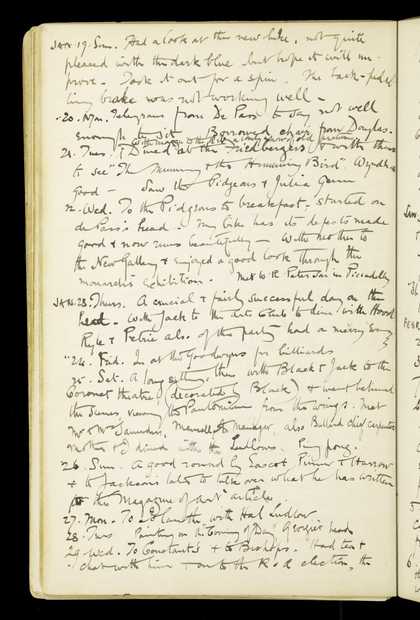 JAN 19. Sun. Had a look at the new bike, not quite
pleased with the dark blue but hope it will im-
prove. Took it out for a spin. The back-pedal-
ling brake was not working well -
20. Mon. Telegram from De Pass to say not well
enough to sit - Borrowed chair from Douglas.
With mother to the
21. Tues. & Dined at the & with them
to see "The Mummy & the Humming Bird" Wyndham
good - Saw the Pidgeons & Julia
22. Wed. To the Pidgeons to breakfast. Started on
de Pass's head - my bike has its top made
good & now runs beautifully - With mother to
the New Gallery & enjoyed a good look through the
monarch's exhibition. Met W. R. in Piccadilly
JAN 23. Thurs. A crucial & fairly successful day on the
head. - With Jack to the Arts Club to dine with Hood
Ryle & Petrie also of the party had a merry evening
24. Frid. In at the Goodwyns for billiards
25. Sat. A long sitting, then with Black & Jack to the
Coronet theatre (decorated by Black) & went behind
the scenes, viewing the Pantomime from the wings. Met
Mr & Mrs Saunders, manager, also Ballard chief carpenter
Mother & I dined with the Ludlows. Ping pong.
26. Sun. A good round by Ascot, Pinner & Harrow
& to Jacksons later to talk over what he has written
for the Magazine of Art article
27. Mon. To with Hal Ludlow
28. Tues. Painting on the Coming of Day, George's head
29. Wed. To Constant's & to Bishops. Had tea &
chat with him & on to the R & A election, the